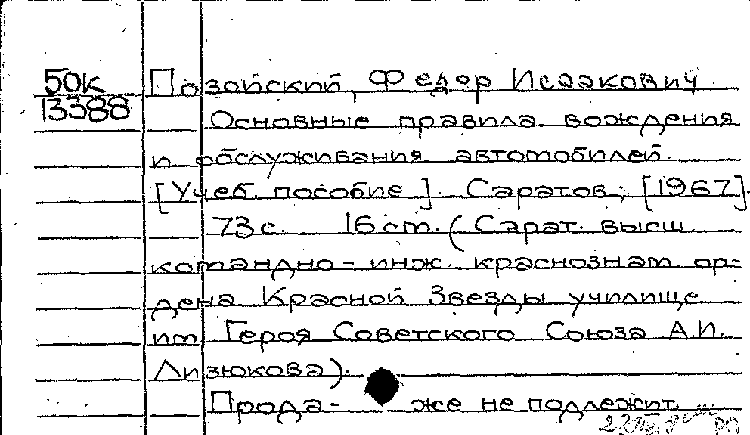 50К
13388
Позойский, Федор Исаакович
Основные правила вождения
и обслуживания автомобилей.
[Учеб. пособие]. Саратов, [1967].
73 с. 16 cm. (Сарат. высш
командно-инж. краснознам ор-
дена Красной Звезды училище
им Героя Советского Союза А.И.
Лизюкова).
Прода- же не подлежит